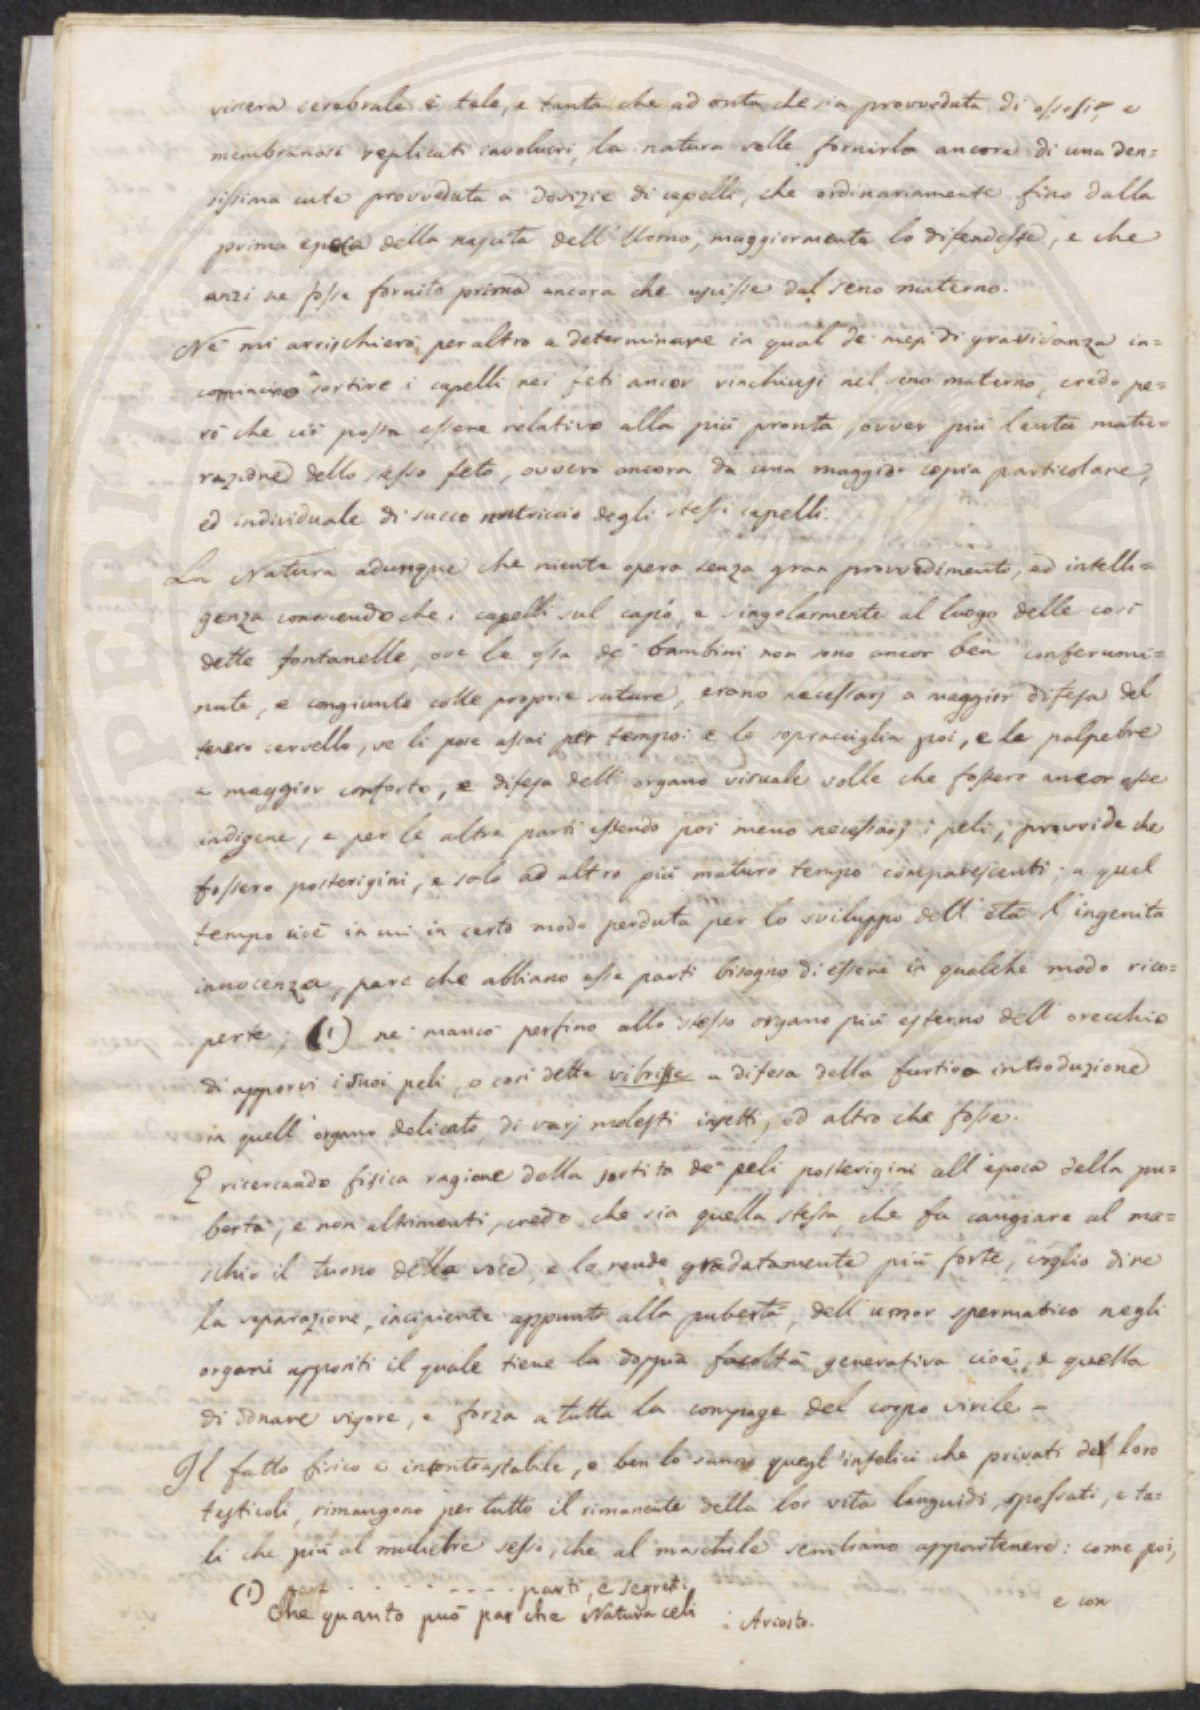 viscera cerebrale è tale, e tanta che ad onta che sia provveduta di ossosi, e
membranosi replicati involucri, la natura volle fornirla ancora di una den=
sissima cute provveduta a dovizie di capelli, che ordinariamente fino dalla
prima epoca della nascita dell'Uomo, maggiormente lo difendesse, e che
anzi ne fosse fornito prima ancora che uscisse dal seno materno.
Nè mi arrischierò peraltro a determinare in qual de' mesi di gravidanza in=
comincino sortire i capelli nei feti ancor rinchiusi nel seno materno, credo pe=
rò che ciò possa essere relativo alla più pronta, ovver più lenta matu=
razione dello stesso feto, ovvero ancora da una maggior copia particolare,
ed individuale di succo nutriccio degli stessi capelli.
La Natura adunque che niente opera senza gran provvedimento, ed intelli=
genza conoscendo che i capelli sul capo, e singolarmente al luogo delle così
dette fontanelle, ove le ossa de' bambini non sono ancor ben conferumi=
nate, e congiunte colle proprie suture, erano necessarj a maggior difesa del
tenero cervello, ve li pose assai per tempo: e le sopracciglia poi, e le palpebre
a maggior conforto, e difesa dell'organo visuale volle che fossero ancor esse
indigene, e per le altre parti essendo poi meno necessarj i peli, provvide che
fossero posterigini, e solo ad altro più maturo tempo comparescenti; a quel
tempo cioè in cui in certo modo perduta per lo sviluppo dell'età l'ingenita
innocenza, pare che abbiano esse parti bisogno di essere in qualche modo rico=
perte; (1) nè mancò perfino allo stesso organo più esterno dell'orecchio
di apporvi i suoi peli, o così dette vibrisse a difesa della furtiva introduzione
in quell'organo delicato, di varj molesti insetti, od altro che fosse.
E ricercando fisica ragione della sortita de' peli posterigini all'epoca della pu=
bertà, e non altrimenti, credo, che sia quella stessa, che fa cangiare al ma=
schio il tuono della voce, e la rende gradatamente più forte, voglio dire
la separazione, incipiente appunto alla pubertà, dell'umor spermatico negli
organi appositi il quale tiene la doppia facoltà generativa cioè, e quella
di donare vigore, e forza a tutta la compage del corpo virile -
Il fatto fisico è incontrastabile, e ben lo sanno quegl'infelici che privati del loro
testicoli, rimangono per tutto il rimanente della lor vita languidi, spossati, e ta=
li che più al muliebre sesso, che al maschile sembrano appartenere: come poi,
e con
(1) . . . . . . . . . parti, e segreti
Che quanto può par che Natura celi
: Ariosto.